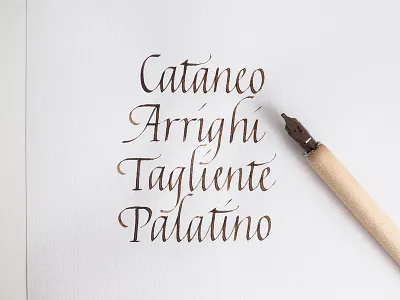 Cataneo
Arrighi
Tagliente
Palatino